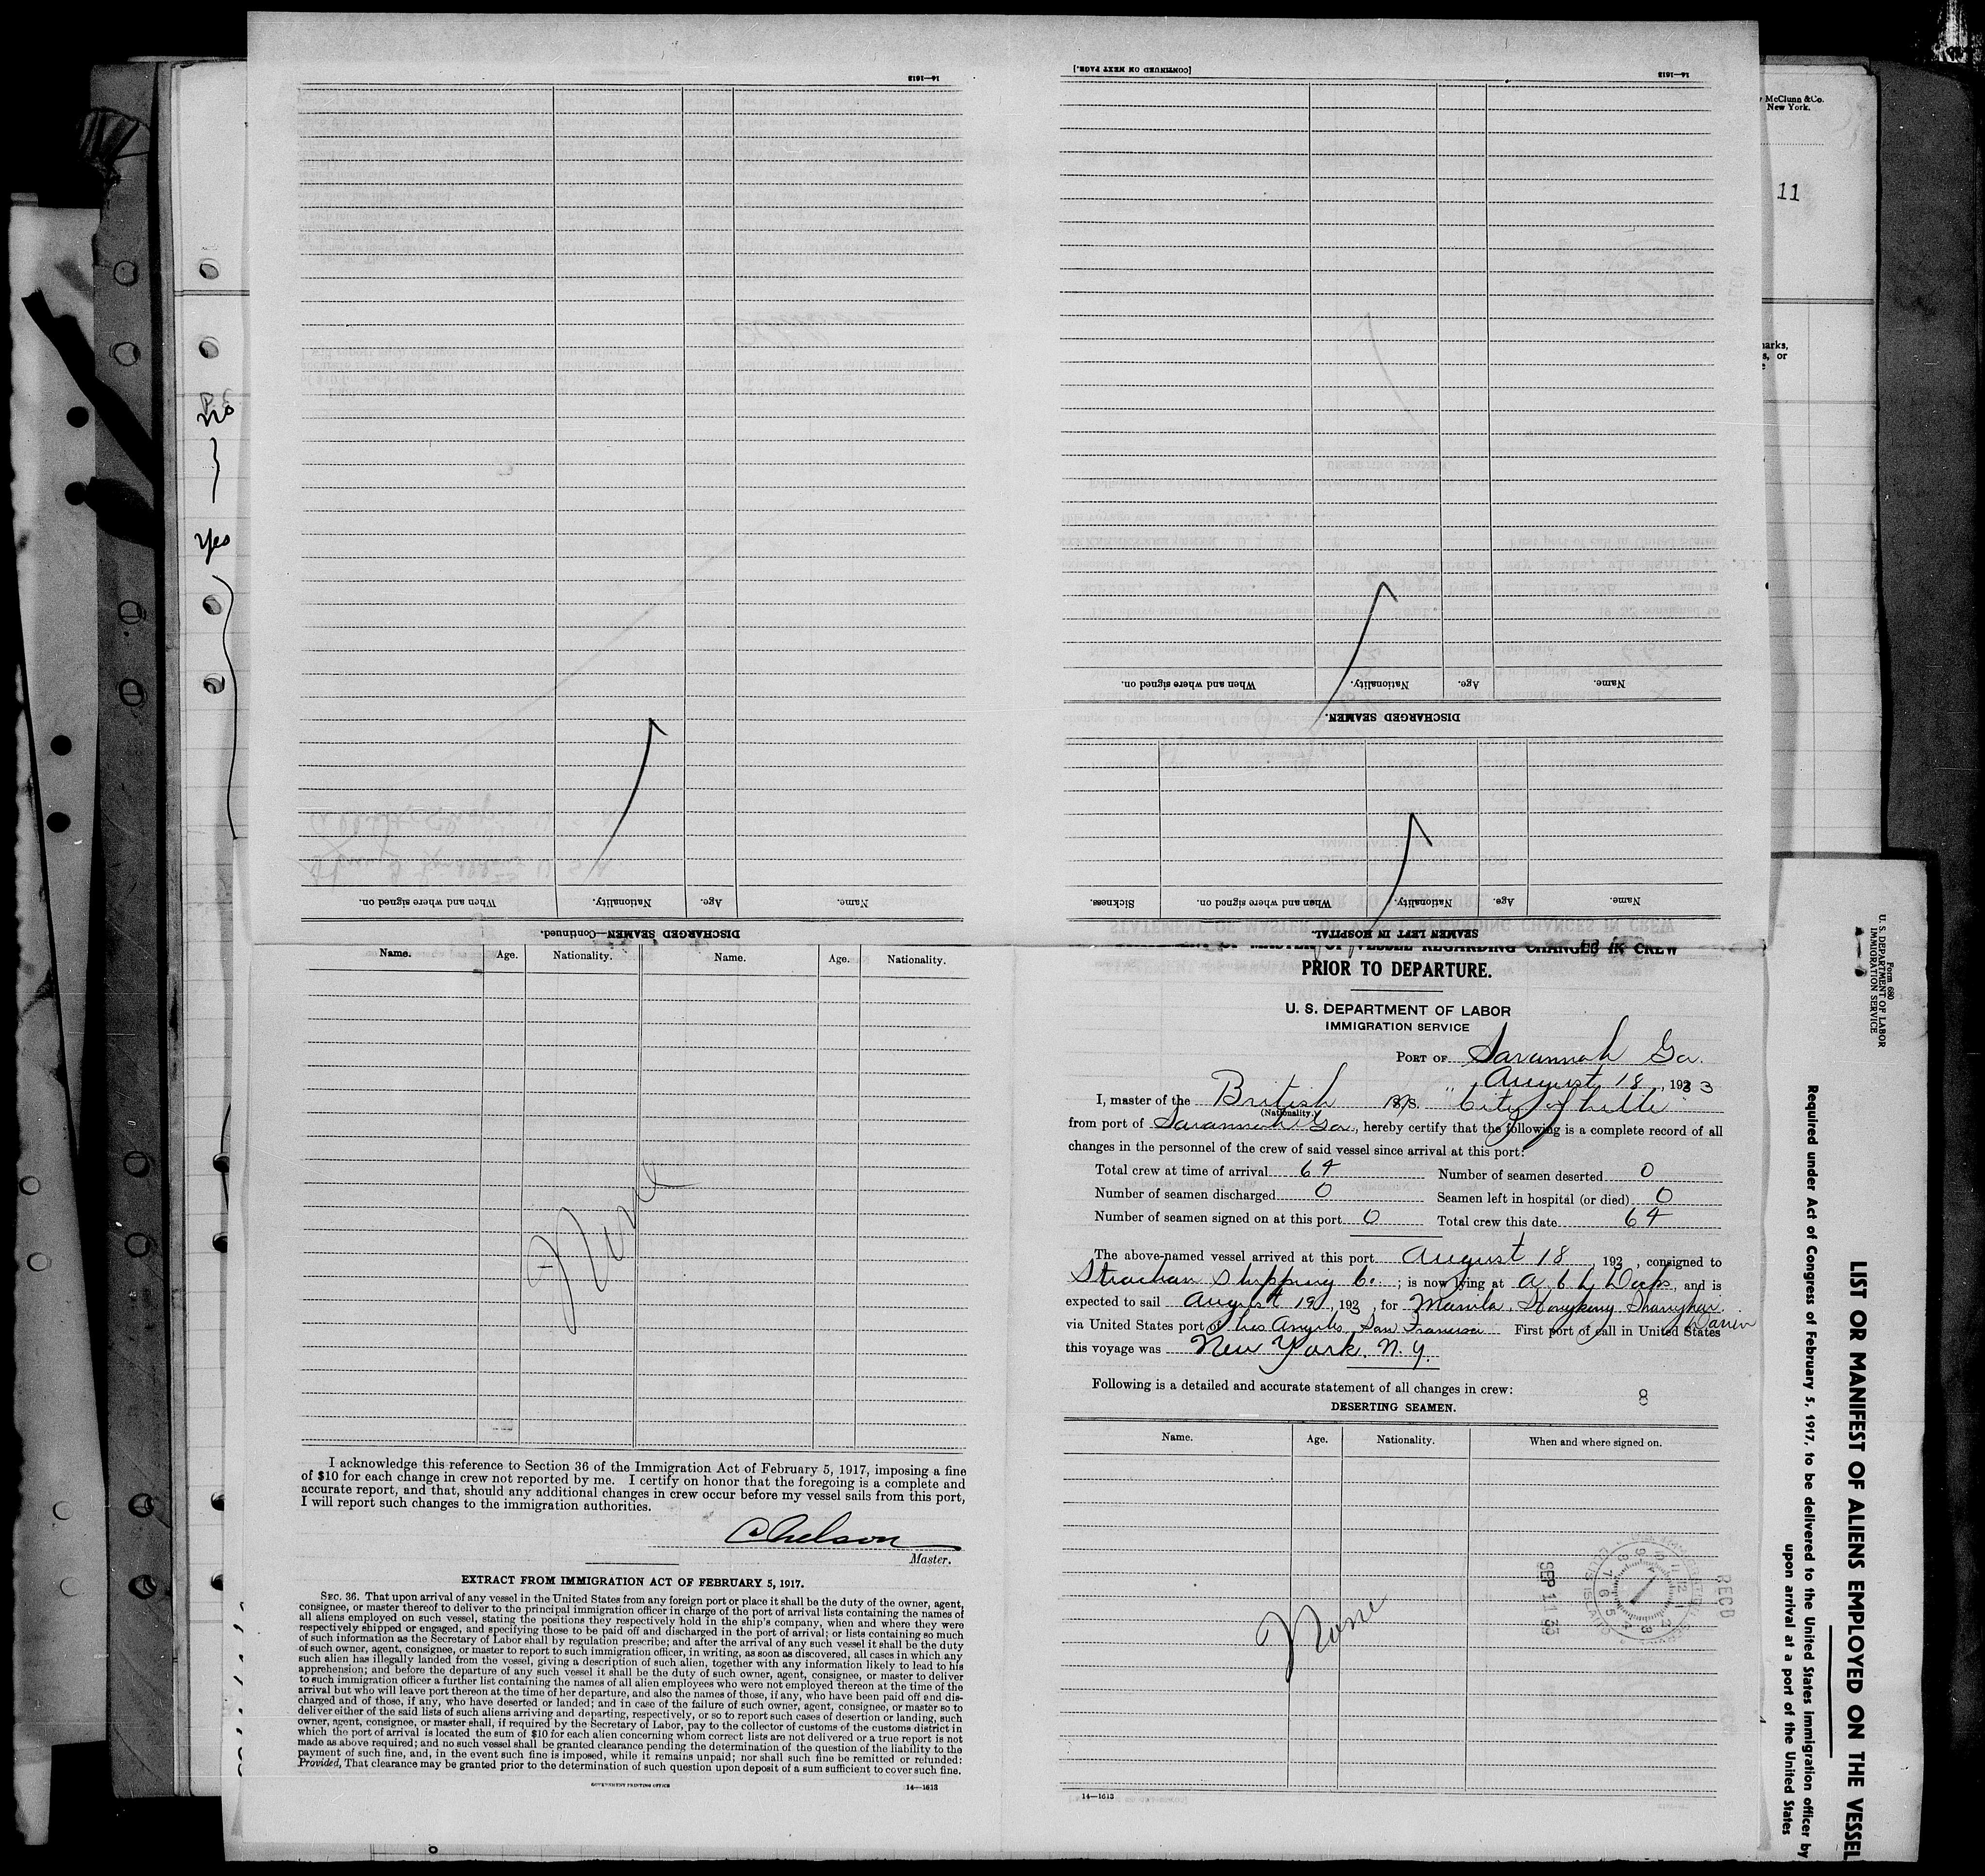 14—1613
[CONTINUED ON NEXT PAGE.]
14—1613
McClunn & Co.
New York.
11
no
yes
When and where signed on.
Nationality.
Age.
Name.
DISCHARGED SEAMEN—Continued.
When and where signed on.
Nationality.
Age.
Name.
DISCHARGED SEAMEN.
Sickness.
When and where signed on.
Nationality.
Age.
Name.
SEAMEN LEFT IN HOSPITAL.
Name. Age. Nationality. Name. Age. Nationality.
None
I acknowledge this reference to Section 36 of the Immigration Act of February 5, 1917, imposing a fine
of $10 for each change in crew not reported by me. I certify on honor that the foregoing is a complete and
accurate report, and that, should any additional changes in crew occur before my vessel sails from this port,
I will report such changes to the immigration authorities.
Master.
EXTRACT FROM IMMIGRATION ACT OF FEBRUARY 5, 1917.
SEC. 36. That upon arrival of any vessel in the United States from any foreign port or place it shall be the duty of the owner, agent,
consignee, or master thereof to deliver to the principal immigration officer in charge of the port of arrival lists containing the names of
all aliens employed on such vessel, stating the positions they respectively hold in the ship's company, when and where they were
respectively shipped or engaged, and specifying those to be paid off and discharged in the port of arrival; or lists containing so much
of such information as the Secretary of Labor shall by regulation prescribe; and after the arrival of any such vessel it shall be the duty
of such owner, agent, consignee, or master to report to such immigration officer, in writing, as soon as discovered, all cases in which any
such alien has illegally landed from the vessel, giving a description of such alien, together with any information likely to lead to his
apprehension; and before the departure of any such vessel it shall be the duty of such owner, agent, consignee, or master to deliver
to such immigration officer a further list containing the names of all alien employees who were not employed thereon at the time of the
arrival but who will leave port thereon at the time of her departure, and also the names of those, if any, who have been paid off and dis-
charged and of those, if any, who have deserted or landed; and in case of the failure of such owner, agent, consignee, or master so to
deliver either of the said lists of such aliens arriving and departing, respectively, or so to report such cases of desertion or landing, such
owner, agent, consignee, or master shall, if required by the Secretary of Labor, pay to the collector of customs of the customs district in
which the port of arrival is located the sum of $10 for each alien concerning whom correct lists are not delivered or a true report is not
made as above required; and no such vessel shall be granted clearance pending the determination of the question of the liability to the
payment of such fine, and, in the event such fine is imposed, while it remains unpaid; nor shall such fine be remitted or refunded:
Provided, That clearance may be granted prior to the determination of such question upon deposit of a sum sufficient to cover such fine.
GOVERNMENT PRINTING OFFICE
14—1613
MASTER OF VESSEL REGARDING CHANGES IN CREW
PRIOR TO DEPARTURE.
U. S. DEPARTMENT OF LABOR
IMMIGRATION SERVICE
PORT OF Savannah Ga.
August 18, 1933
I, master of the British S/S. "City of
(Nationality.)
from port of Savannah Ga., hereby certify that the following is a complete record of all
changes in the personnel of the crew of said vessel since arrival at this port:
Total crew at time of arrival 64 Number of seamen deserted 0
Number of seamen discharged 0 Seamen left in hospital (or died) 0
Number of seamen signed on at this port 0 Total crew this date 64
The above-named vessel arrived at this port August 18, 193 , consigned to
Strachan Shipping Co. ; is now lying at A. C. L. Docks, and is
expected to sail August 19, 193 , for Manila, Hongkong Shanghai
via United States port of Los Angeles, San Francisco First port of call in United States
this voyage was New York, N. Y.
Following is a detailed and accurate statement of all changes in crew:
8
DESERTING SEAMEN.
Name. Age. Nationality. When and where signed on.
None
SEP 11 33
RECD
14—1613
Form 680
U. S. DEPARTMENT OF LABOR
IMMIGRATION SERVICE
LIST OR MANIFEST OF ALIENS EMPLOYED ON THE VESSEL
Required under Act of Congress of February 5, 1917, to be delivered to the United States immigration officer by
upon arrival at a port of the United States